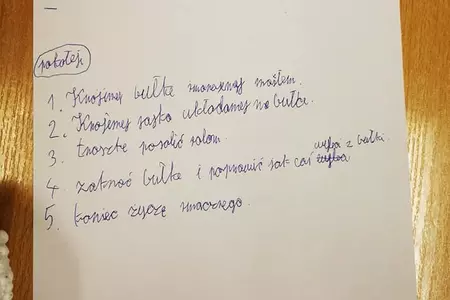 po kolei
1. Krojimy bułke smarujemy masłem.
2. Krojimy jajko układamy na bułce.
3 troszke posolić solom.
4 zaknoć bułke i poprawić jak coś wyłazi z bułki.
5. koniec życzę smacznego.